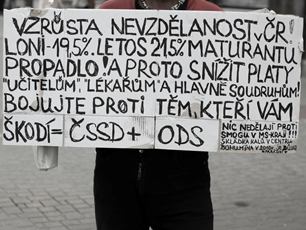 VZRŮSTA NEVZDĚLANOST V ČR!
LONI-19,5%. LETOS 21,5% MATURANTU
PROPADLO! A PROTO SNÍŽIT PLATY
"UČITELŮM", "LÉKAŘŮM" A HLAVNĚ SOUDRUHŮM!
BOJUJTE PROTI TĚM, KTEŘÍ VÁM
ŠKODÍ = ČSSD + ODS
NIC NEDĚLAJÍ PROTI
SMOGU V MS-KRAJI!!!
SKLÁDKA KALŮ V CENTRU
BOHUMÍNA